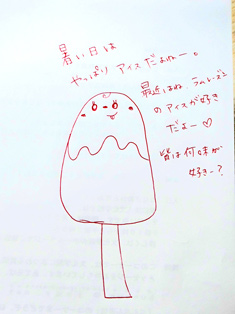 暑い日は
やっぱりアイスだよねー。
最近はね ラムレーズン
のアイスが好き
だよー♡
皆は何味が
好きー?